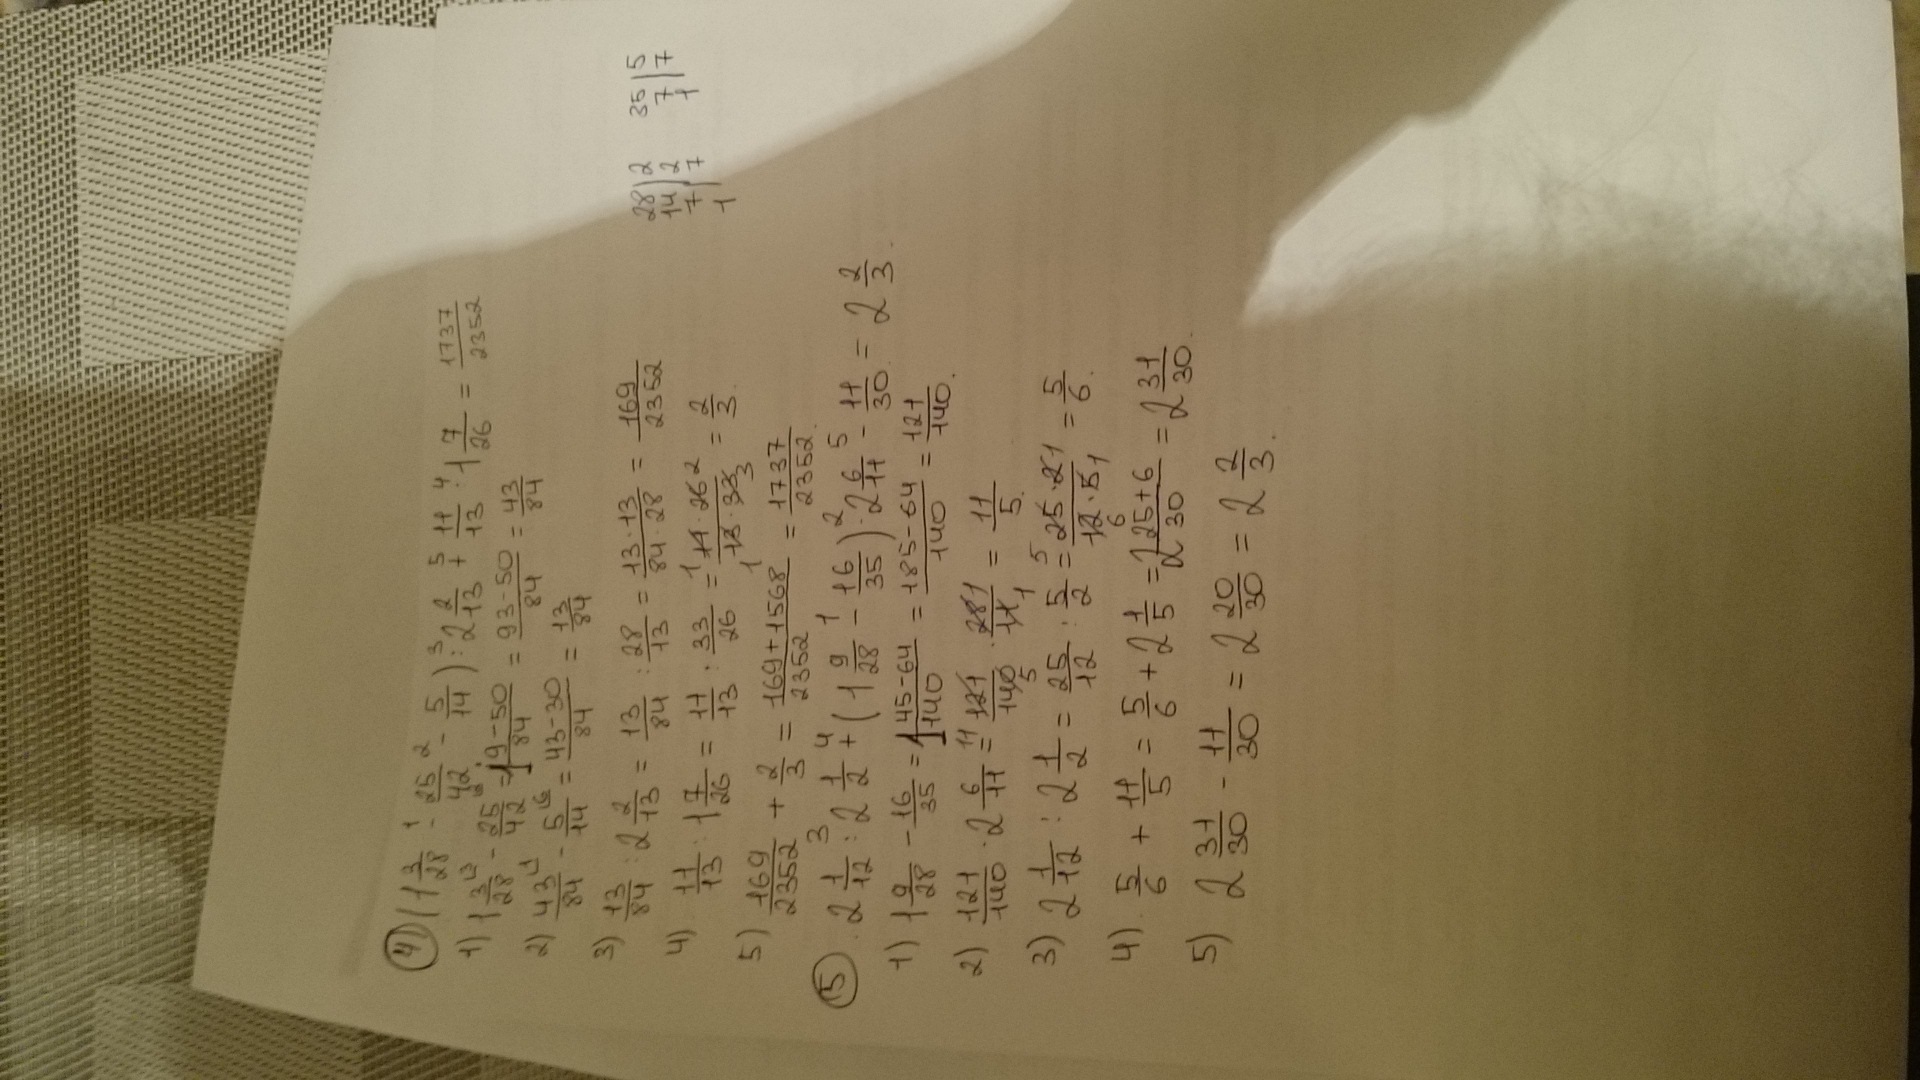 ④ (1 3/28 ¹ - 25/42 ² - 5/14) ³ : 2 2/13 ⁵ + 11/13 ⁴ : 1 7/26 = 1737/2352
1) 1 3/28 - 25/42 = 1 9-50/84 = 93-50/84 = 43/84
2) 43/84 - 5/14 = 43-30/84 = 13/84
3) 13/84 : 2 2/13 = 13/84 : 28/13 = 13·13/84·28 = 169/2352
4) 11/13 : 1 7/26 = 11/13 : 33/26 = 11·26/13·33 = 2/3.
5) 169/2352 + 2/3 = 169+1568/2352 = 1737/2352.
28|2 35|5
14|2 7|7
7|7 1
1
⑤ 2 1/12 ³ : 2 1/2 ⁴ + (1 9/28 ¹ - 16/35) ² · 2 6/11 ⁵ - 11/30 = 2 2/3.
1) 1 9/28 - 16/35 = 1 45-64/140 = 185-64/140 = 121/140.
2) 121/140 · 2 6/11 = 121/140 · 28/11 = 11/5.
3) 2 1/12 : 2 1/2 = 25/12 : 5/2 = 25·2/12·5 = 5/6.
4) 5/6 + 11/5 = 5/6 + 2 1/5 = 2 25+6/30 = 2 31/30.
5) 2 31/30 - 11/30 = 2 20/30 = 2 2/3.